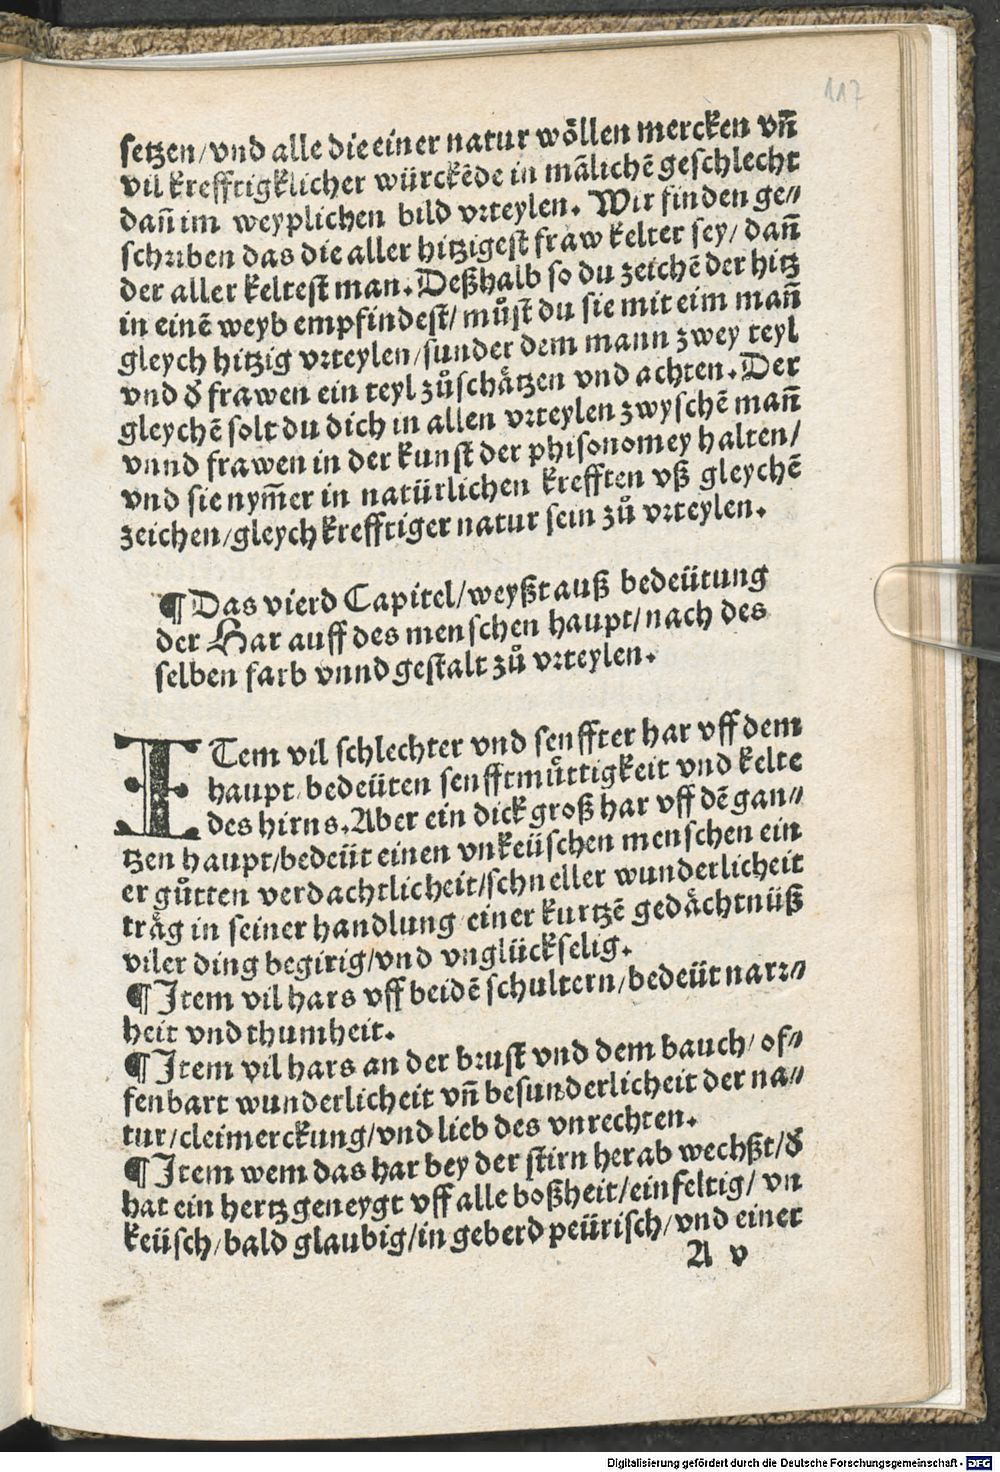 117
setzen/vnd alle die einer natur wöllen mercken vñ
vil krefftigklicher würckēde in mālichē geschlecht
dañ im weyplichen bild vrteylen. Wir finden ge⸗
schriben das die aller hitzigest fraw kelter sey/ dañ
der aller keltest man. Deßhalb so du zeichē der hitz
in einē weyb empfindest/ můst du sie mit eim mañ
gleych hitzig vrteylen/sunder dem mann zwey teyl
vnd ð frawen ein teyl zůschätzen vnd achten. Der
gleychē solt du dich in allen vrteylen zwyschē mañ
vnnd frawen in der kunst der phisonomey halten/
vnd sie nym̄er in natürlichen krefften vß gleychē
zeichen/gleych krefftiger natur sein zů vrteylen.
¶ Das vierd Capitel/weyßt auß bedeütung
der Har auff des menschen haupt/nach des
selben farb vnnd gestalt zů vrteylen.
ITem vil schlechter vnd senffter har vff dem
haupt/bedeüten senfftmůttigkeit vnd kelte
des hirns. Aber ein dick groß har vff dē gan⸗
tzen haupt/bedeüt einen vnkeüschen menschen ein
er gůtten verdachtlicheit/schneller wunderlicheit
träg in seiner handlung/einer kurtzē gedächtnüß
viler ding begirig/vnd vnglückselig.
¶ Item vil hars vff beidē schultern/bedeüt narr⸗
heit vnd thumheit.
¶ Item vil hars an der brust vnd dem bauch/of⸗
fenbart wunderlicheit vñ besunderlicheit der na⸗
tur/cleimerckung/vnd lieb des vnrechten.
¶ Item wem das har bey der stirn herab wechßt/ð
hat ein hertz geneygt vff alle boßheit/einfeltig/ vn
keüsch/bald glaubig/in geberd peürisch/vnd einer
A v
Digitalisierung gefördert durch die Deutsche Forschungsgemeinschaft - DFG